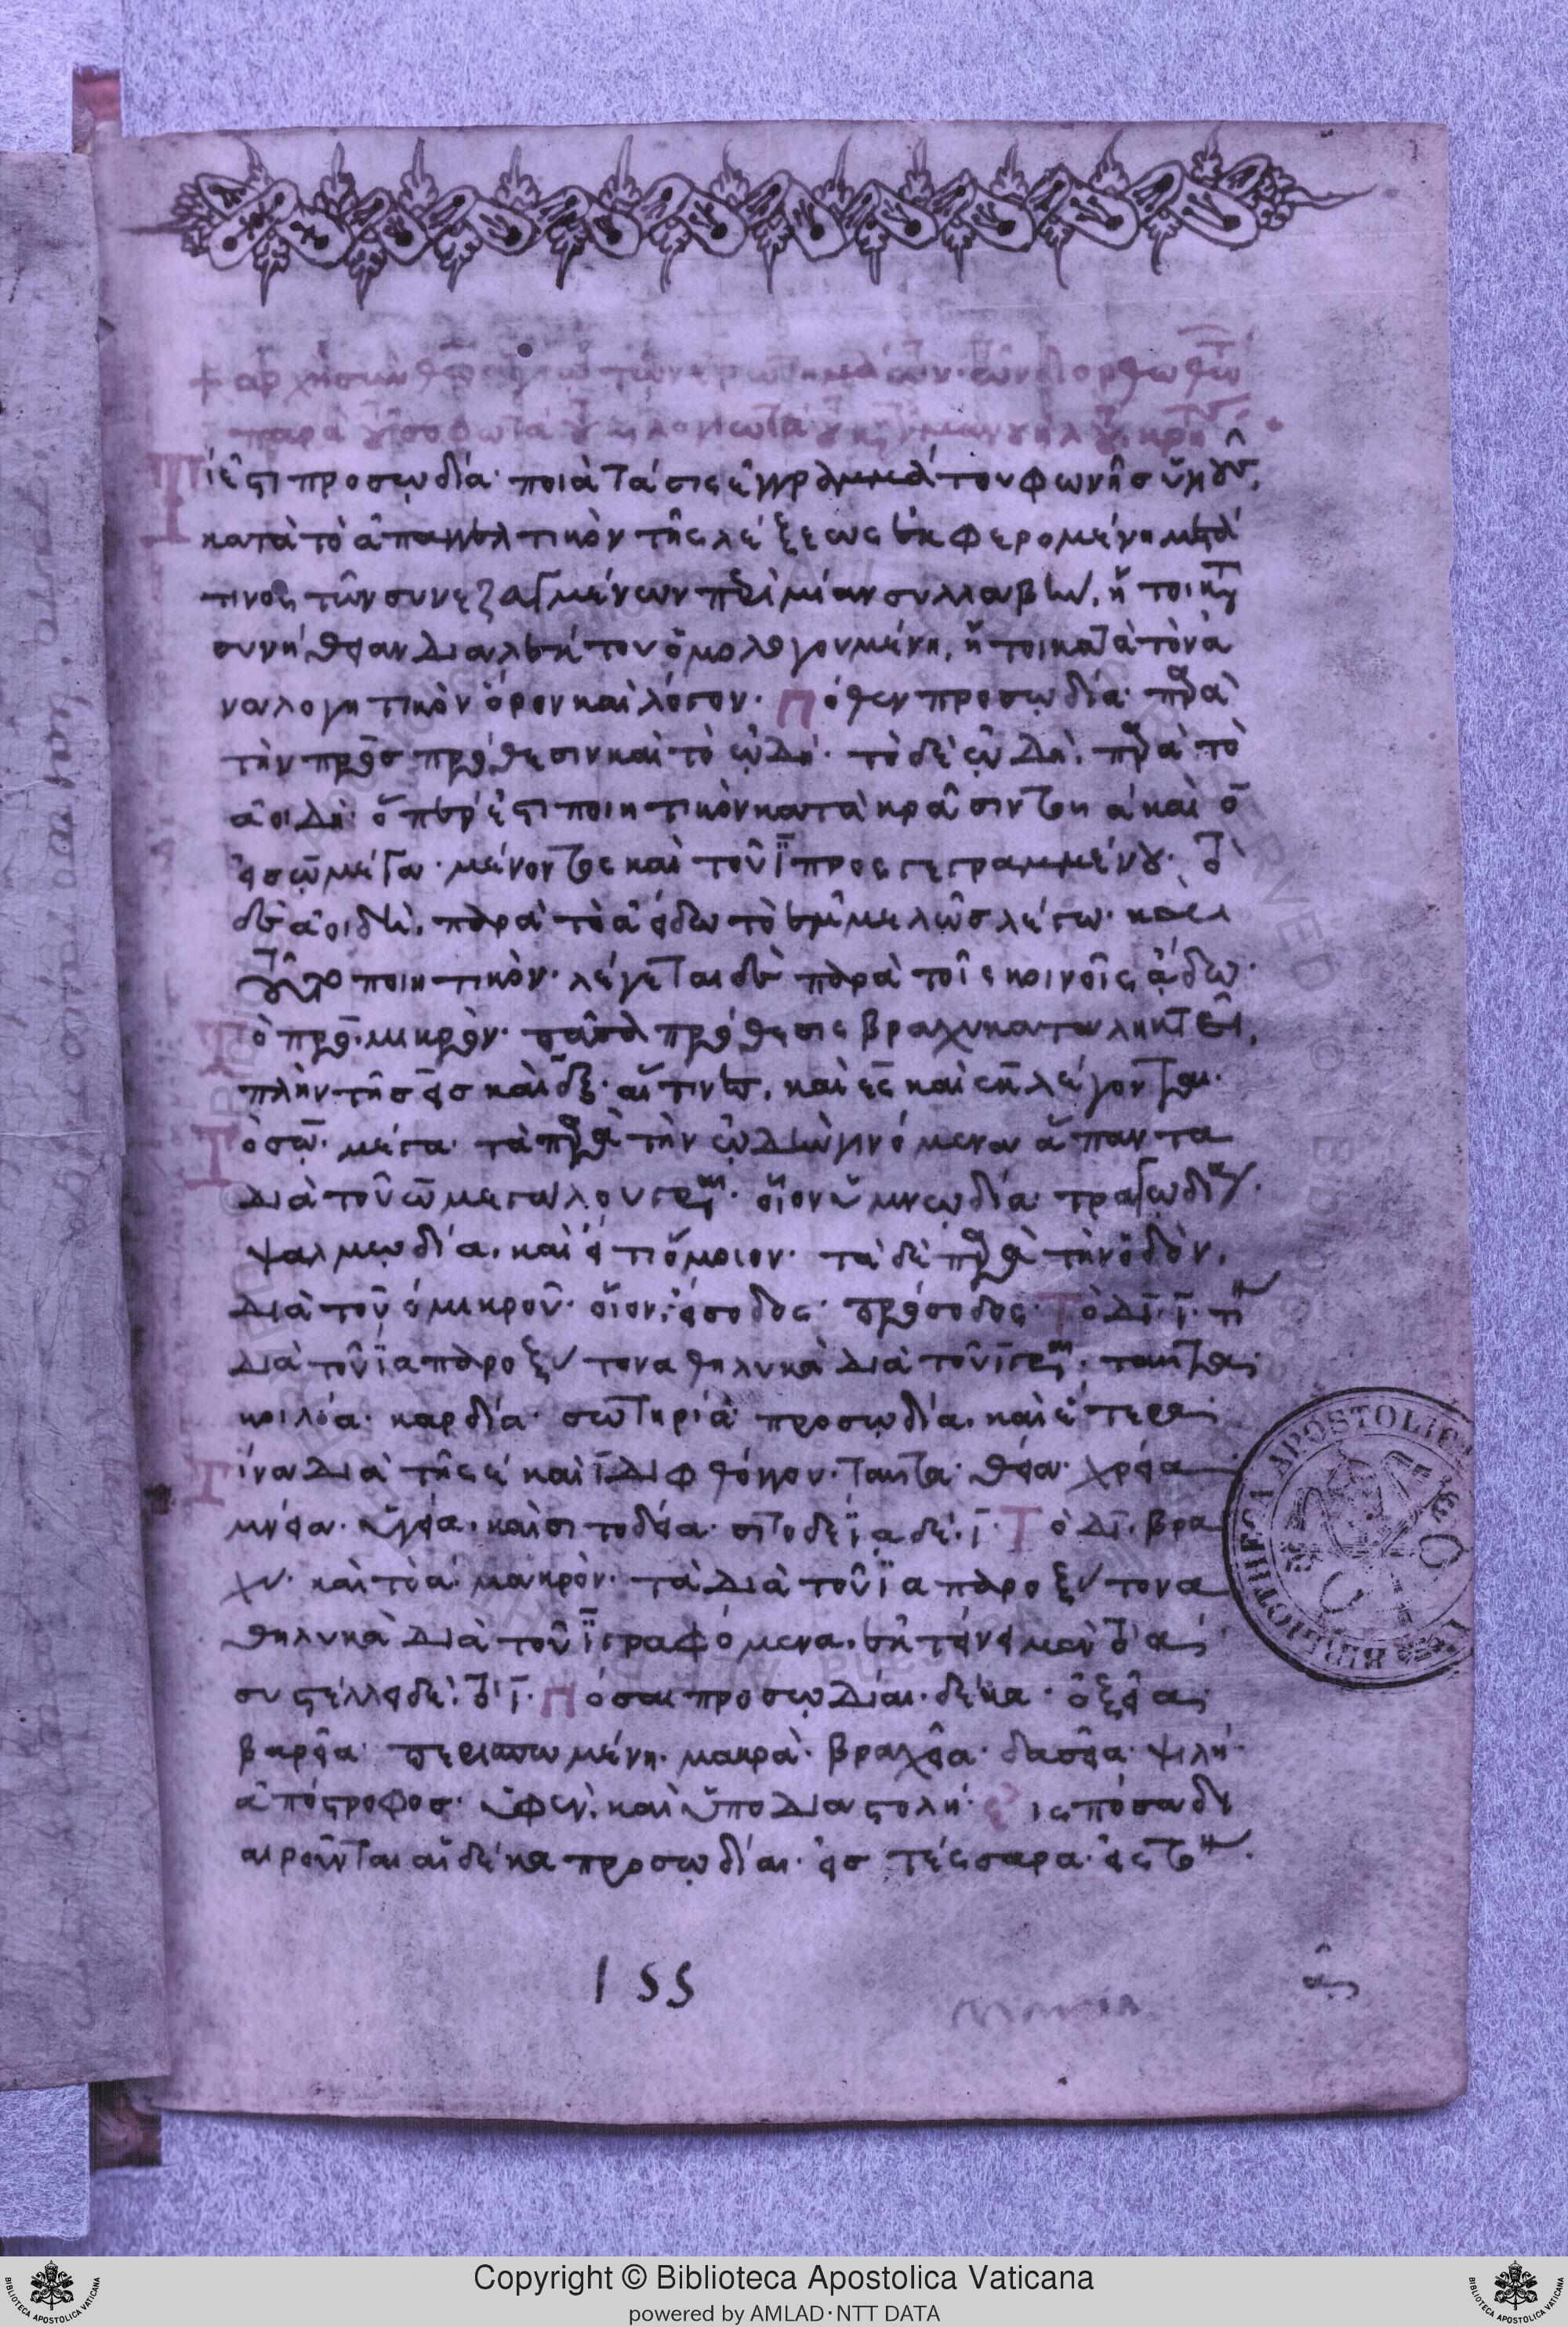 ἀρχὴ σὺν θεῷ τῶν ἐρωτημάτων τῶν διορθωθέντ
παρὰ τοῦ σοφωτάτου καὶ λογιωτάτου κυροῦ μανουὴλ τοῦ κρητ
Τί ἐστι προσωδία· ποιὰ τάσις ἐγγραμμάτου φωνῆς ὑγιοῦς,
κατὰ τὸ ἀπαγγελτικὸν τῆς λέξεως ἐκφερομένη μετά
τινος τῶν συνεζευγμένων περὶ μίαν συλλαβὴν, ἤτοι κατὰ
συνήθειαν διαλέκτου ὁμολογουμένη, ἤτοι κατὰ τὸν ἀ
ναλογητικὸν ὅρον καὶ λόγον. Πόθεν προσωδία· παρὰ
τὴν πρὸς πρόθεσιν καὶ τὸ ᾠδή· τὸ δὲ ᾠδὴ, παρὰ τὸ
ἀοιδή· ὅπερ ἐστὶ ποιητικὸν κατὰ κρᾶσιν τοῦ α καὶ ο
εἰς ω μέγα· μένοντος καὶ τοῦ ϊ προσγεγραμμένου· τὸ
δὲ ἀοιδὴ, παρὰ τὸ ἀείδω τὸ ἐμμελῶς λέγω· καὶ
ποιητικὸν· λέγεται δὲ παρὰ τοῖς κοινοῖς ᾄδω·
Τὸ προ. μικρὸν· πᾶσα πρόθεσις βραχυκαταληκτεῖ,
πλὴν τῆς εἰς καὶ ἐξ· αἵτινες, καὶ ἐς καὶ ἐκ λέγονται·
Τὸ σω. μέγα· τὰ παρὰ τὴν ᾠδὴν γινόμενα ἅπαντα
διὰ τοῦ ω μεγάλου γράφεται· οἷον ὑμνωδία· τραγωδία·
ψαλμωδία, καὶ εἴ τι ὅμοιον· τὰ δὲ παρὰ τὴν ὁδὸν,
διὰ τοῦ ο μικροῦ· οἷον, εἴσοδος· πρόσοδος· Τὸ δι. ϊ. τί·
διὰ τοῦ ϊα παροξύτονα θηλυκὰ διὰ τοῦ ι γράφεται· ταῦτα·
κοιλία· καρδία· σωτηρία· προσωδία, καὶ ἕτερα·
Τίνα διὰ τῆς ε καὶ ι διφθόγγου· ταῦτα· θεία· χρεία
μνεία· ὑγεία, καὶ σιτοδεία· σιτοδεϊα δὲ. ϊ. Τὸ δι. βρα
χύ· καὶ τὸ α μακρὸν· τὰ διὰ τοῦ ϊα παροξύτονα
θηλυκὰ διὰ τοῦ ϊ γραφόμενα, ἐκτείνει μὲν τὸ α,
συστέλλει δὲ, τὸ ϊ. Πόσαι προσωδίαι· δέκα· ὀξεῖα,
βαρεῖα· περισπωμένη· μακρὰ· βραχεῖα· δασεῖα· ψιλή·
ἀπόστροφος· ὑφὲν, καὶ ὑποδιαστολή· Εἰς πόσα δι
αιροῦνται αἱ δέκα προσωδίαι· εἰς τέσσαρα· εἰς τό
155
Copyright © Biblioteca Apostolica Vaticana
powered by AMLAD·NTT DATA